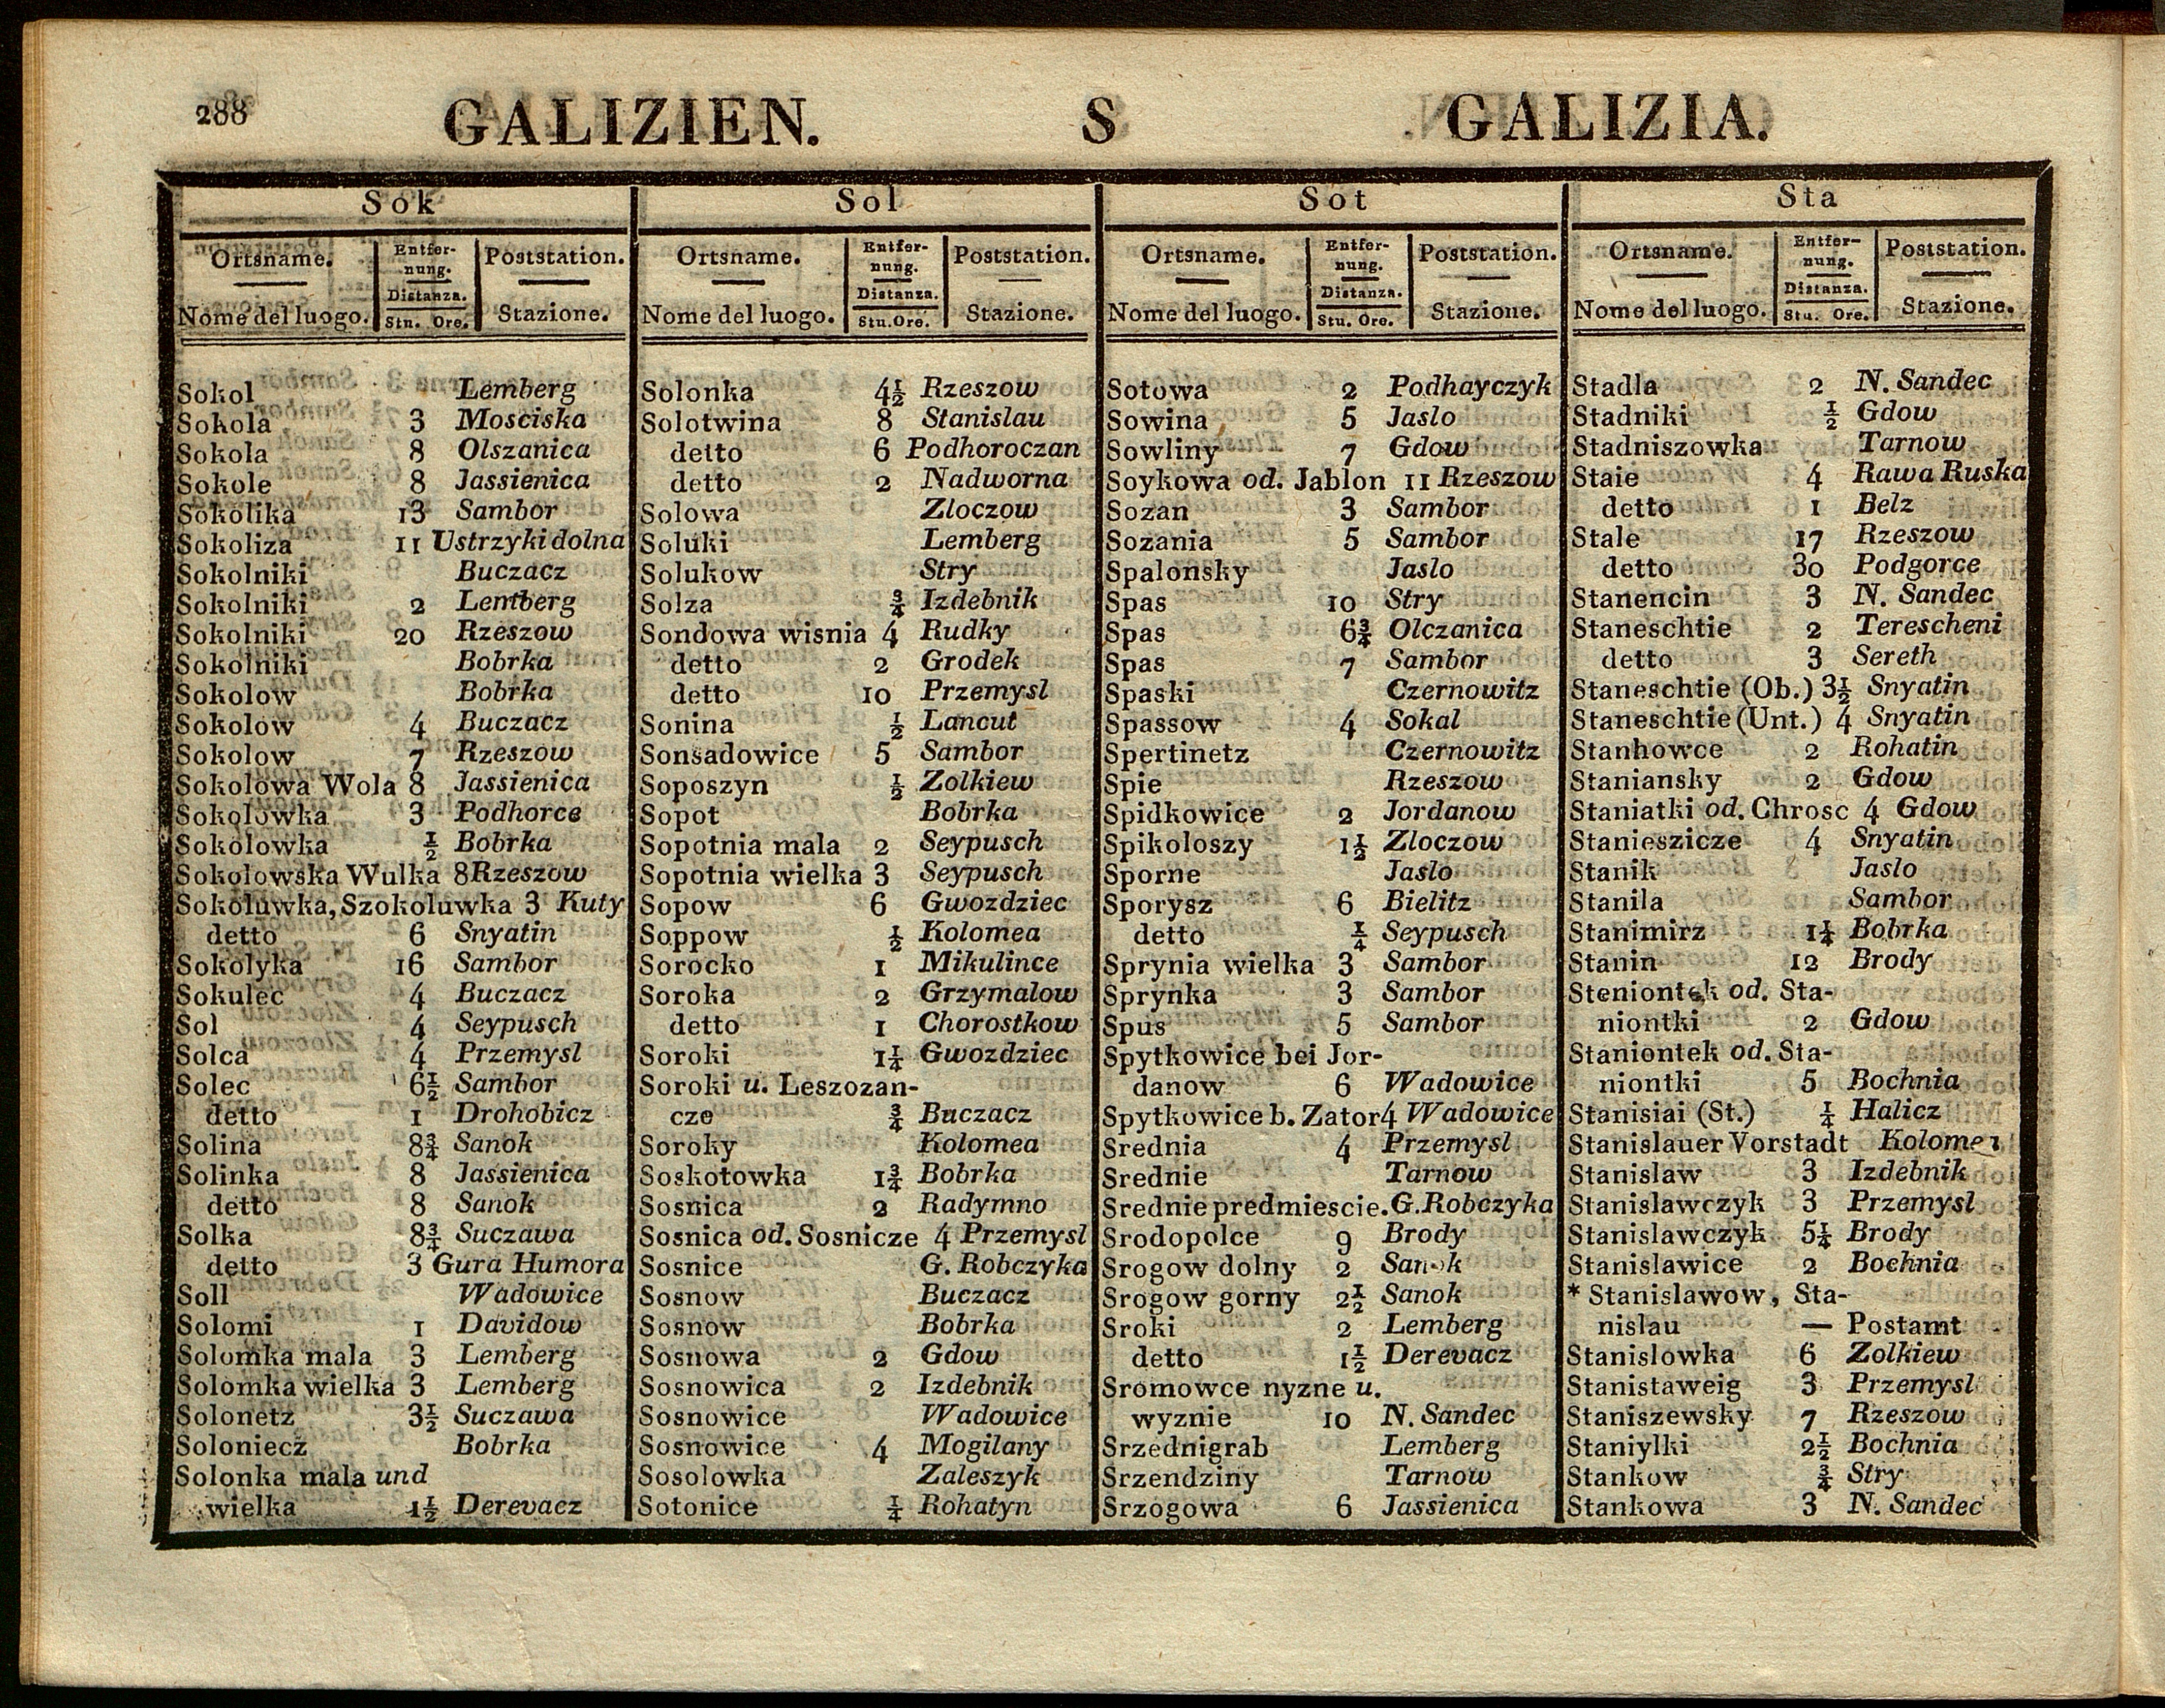 288 GALIZIEN. S GALIZIA.
Sok
Ortsname. Entfer- Poststation.
nung.
Distanza.
Nome del luogo. Stu. Ore. Stazione.
Sokol Lemberg
Sokola 3 Mosciska
Sokola 8 Olszanica
Sokole 8 Jassienica
Sokolika 13 Sambor
Sokoliza 11 Ustrzyki dolna
Sokolniki Buczacz
Sokolniki 2 Lemberg
Sokolniki 20 Rzeszow
Sokolniki Bobrka
Sokolow Bobrka
Sokolow 4 Buczacz
Sokolow 7 Rzeszow
Sokolowa Wola 8 Jassienica
Sokolowka 3 Podhorce
Sokolowka ½ Bobrka
Sokolowska Wulka 8 Rzeszow
Sokoluwka, Szokoluwka 3 Kuty
detto 6 Snyatin
Sokolyka 16 Sambor
Sokulec 4 Buczacz
Sol 4 Seypusch
Solca 4 Przemysl
Solec 6½ Sambor
detto 1 Drohobicz
Solina 8¾ Sanok
Solinka 8 Jassienica
detto 8 Sanok
Solka 8¾ Suczawa
detto 3 Gura Humora
Soll Wadowice
Solomi 1 Davidow
Solomka mala 3 Lemberg
Solomka wielka 3 Lemberg
Solonetz 3½ Suczawa
Soloniecz Bobrka
Solonka mala und
wielka 1½ Derevacz
Sol
Ortsname. Entfer- Poststation.
nung.
Distanza.
Nome del luogo. Stu. Ore. Stazione.
Solonka 4½ Rzeszow
Solotwina 8 Stanislau
detto 6 Podhoroczan
detto 2 Nadworna
Solowa Zloczow
Soluki Lemberg
Solukow Stry
Solza ¾ Izdebnik
Sondowa wisnia 4 Rudky
detto 2 Grodek
detto 10 Przemysl
Sonina ½ Lancut
Sonsadowice 5 Sambor
Soposzyn ½ Zolkiew
Sopot Bobrka
Sopotnia mala 2 Seypusch
Sopotnia wielka 3 Seypusch
Sopow 6 Gwozdziec
Soppow ½ Kolomea
Sorocko 1 Mikulince
Soroka 2 Grzymalow
detto 1 Chorostkow
Soroki 1¼ Gwozdziec
Soroki u. Leszozan-
cze ¾ Buczacz
Soroky Kolomea
Soskotowka 1¾ Bobrka
Sosnica 2 Radymno
Sosnica od. Sosnicze 4 Przemysl
Sosnice G. Robczyka
Sosnow Buczacz
Sosnow Bobrka
Sosnowa 2 Gdow
Sosnowica 2 Izdebnik
Sosnowice Wadowice
Sosnowice 4 Mogilany
Sosolowka Zaleszyk
Sotonice ¼ Rohatyn
Sot
Ortsname. Entfer- Poststation.
nung.
Distanza.
Nome del luogo. Stu. Ore. Stazione.
Sotowa 2 Podhayczyk
Sowina 5 Jaslo
Sowliny 7 Gdow
Soykowa od. Jablon 11 Rzeszow
Sozan 3 Sambor
Sozania 5 Sambor
Spalonsky Jaslo
Spas 10 Stry
Spas 6¾ Olczanica
Spas 7 Sambor
Spaski Czernowitz
Spassow 4 Sokal
Spertinetz Czernowitz
Spie Rzeszow
Spidkowice 2 Jordanow
Spikoloszy 1½ Zloczow
Sporne Jaslo
Sporysz 6 Bielitz
detto ¼ Seypusch
Sprynia wielka 3 Sambor
Sprynka 3 Sambor
Spus 5 Sambor
Spytkowice bei Jor-
danow 6 Wadowice
Spytkowice b. Zator 4 Wadowice
Srednia 4 Przemysl
Srednie Tarnow
Srednie predmiescie. G. Robczyka
Srodopolce 9 Brody
Srogow dolny 2 Sanok
Srogow gorny 2½ Sanok
Sroki 2 Lemberg
detto 1½ Derevacz
Sromowce nyzne u.
wyznie 10 N. Sandec
Srzednigrab Lemberg
Srzendziny Tarnow
Srzogowa 6 Jassienica
Sta
Ortsname. Entfer- Poststation.
nung.
Distanza.
Nome del luogo. Stu. Ore. Stazione.
Stadla 2 N. Sandec
Stadniki ½ Gdow
Stadniszowka Tarnow
Staie 4 Rawa Ruska
detto 1 Belz
Stale 17 Rzeszow
detto 30 Podgorce
Stanencin 3 N. Sandec
Staneschtie 2 Terescheni
detto 3 Sereth
Staneschtie (Ob.) 3½ Snyatin
Staneschtie (Unt.) 4 Snyatin
Stanhowce 2 Rohatin
Staniansky 2 Gdow
Staniatki od. Chrosc 4 Gdow
Stanieszicze 4 Snyatin
Stanik Jaslo
Stanila Sambor
Stanimirz 1¼ Bobrka
Stanin 12 Brody
Steniontek od. Sta-
niontki 2 Gdow
Staniontek od. Sta-
niontki 5 Bochnia
Stanisiai (St.) ¼ Halicz
Stanislauer Vorstadt Kolomea
Stanislaw 3 Izdebnik
Stanislawczyk 3 Przemysl
Stanislawczyk 5¼ Brody
Stanislawice 2 Bochnia
* Stanislawow, Sta-
nislau — Postamt
Stanislowka 6 Zolkiew
Stanistaweig 3 Przemysl
Staniszewsky 7 Rzeszow
Staniylki 2½ Bochnia
Stankow ¾ Stry
Stankowa 3 N. Sandec